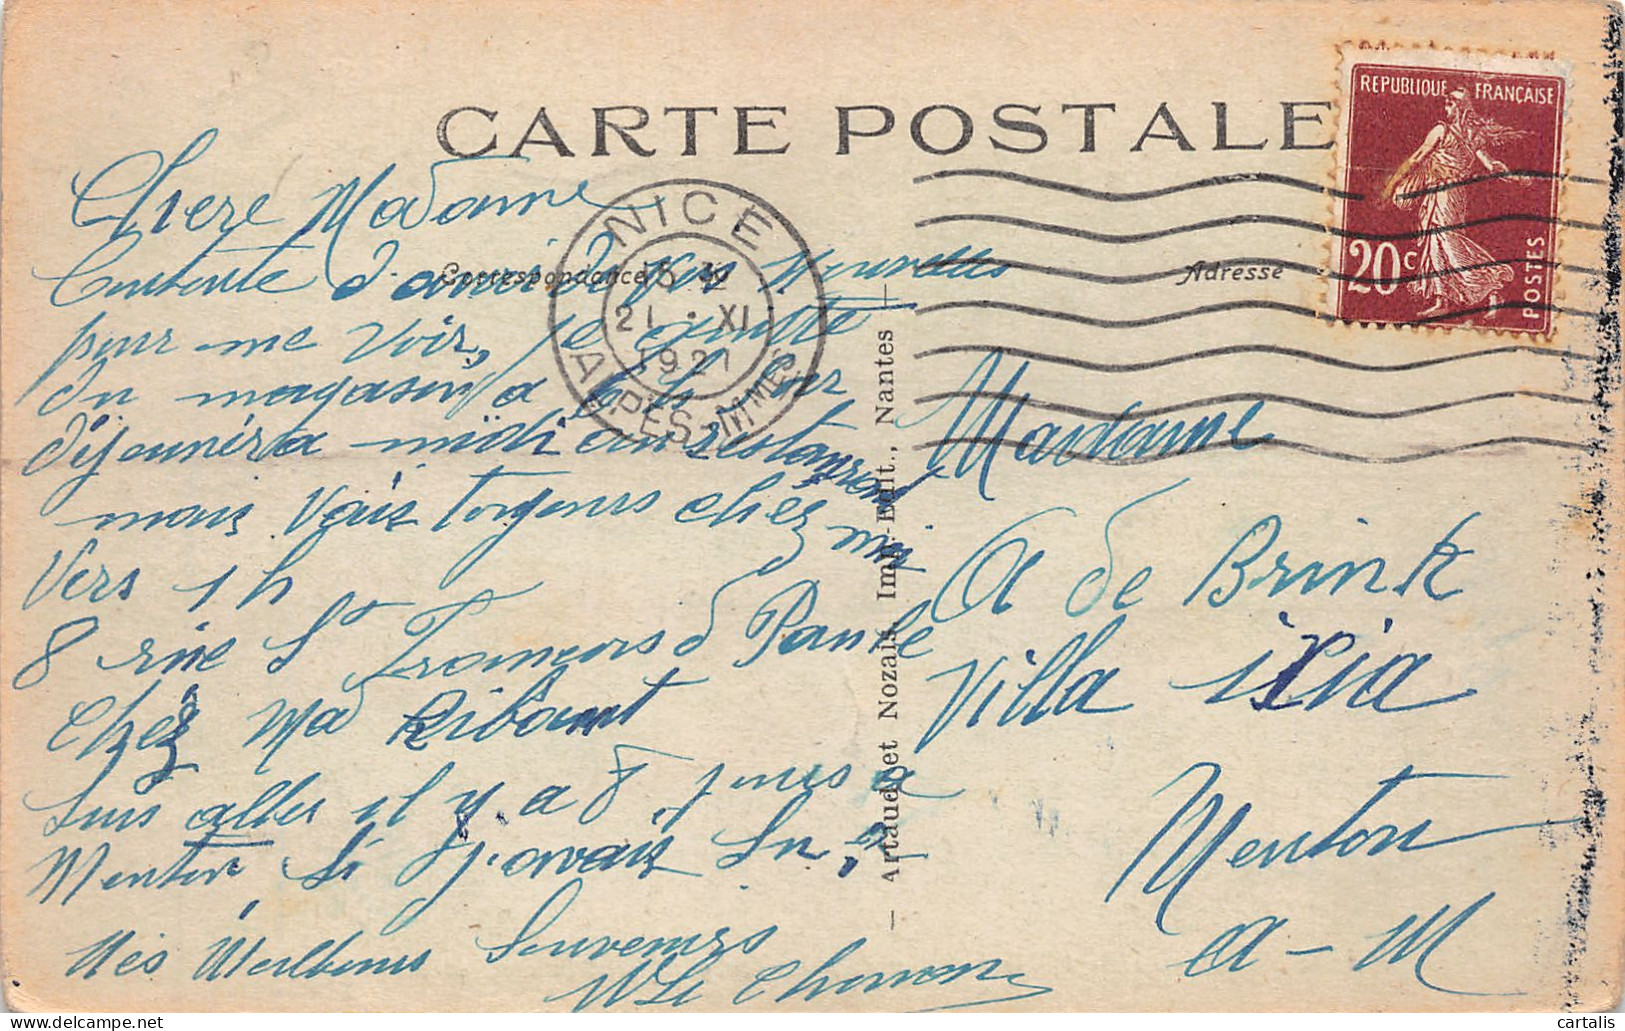 CARTE POSTALE
REPUBLIQUE FRANÇAISE
20c
POSTES
NICE
21 · XI
1921
ALPES-MMES
Correspondance
Adresse
Chere Madame
Contente d'avoir vos nouvelles
pour me voir, je quitte
du magasin a 6 h pour
déjeuner a midi au restaurant
mais vais toujours chez moi
Vers 1 h
8 rue St François d Paule
Chez Md Ribaut
Suis aller il y a 8 jours a
Menton Si j'avais Su ?
Mes Meilleurs Souvenirs
Mlle
Artaud et Nozais, Imp.-Edit., Nantes
Madame
A de Brink
Villa ixia
Menton
A-M
cartalis